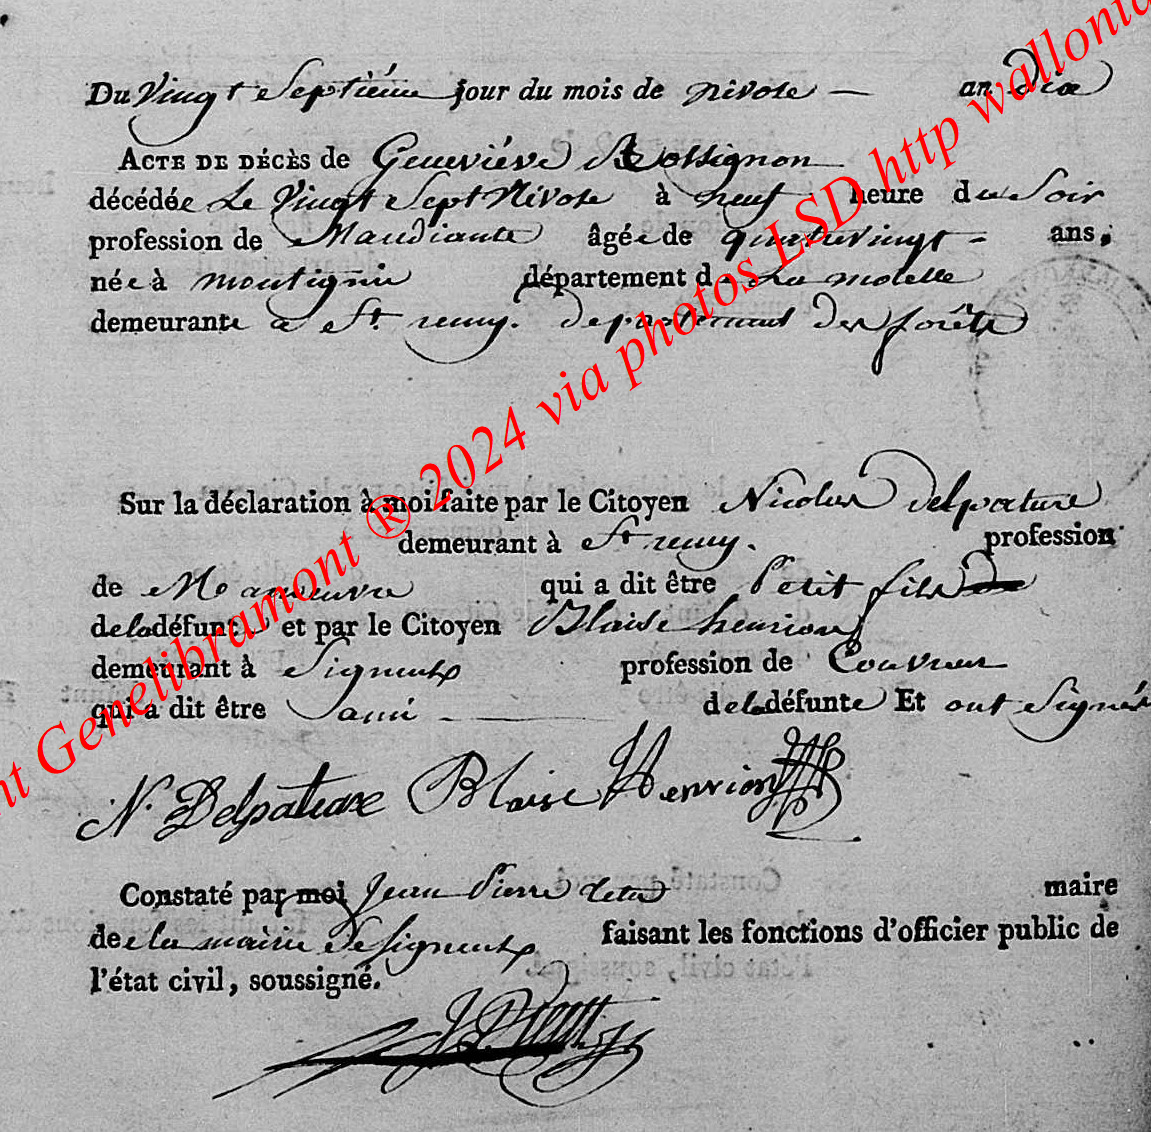 Du Vingt Septiéme jour du mois de nivose — an Dix
ACTE DE DÉCÈS de Geneviéve Rossignon
décédée Le Vingt Sept Nivose à neuf heure du Soir
profession de Mandiante âgée de quatrevingt - ans,
née à montignie département d La moselle
demeurante a St. remy. departement des forêts
Sur la déclaration à moi faite par le Citoyen Nicolas delpature
demeurant à St remy. profession
de Manœuvre qui a dit être Petit fils
de la défunte et par le Citoyen Blaise henrion
demeurant à Signeulx profession de Couvreur
qui a dit être L'ami de la défunte Et ont Signés
N. Delpature Blaise Henrion
Constaté par moi Jean Pierre maire
de la mairie de Signeulx faisant les fonctions d'officier public de
l'état civil, soussigné.
nt Genelibramont ® 2024 via photos LSD http wallonia